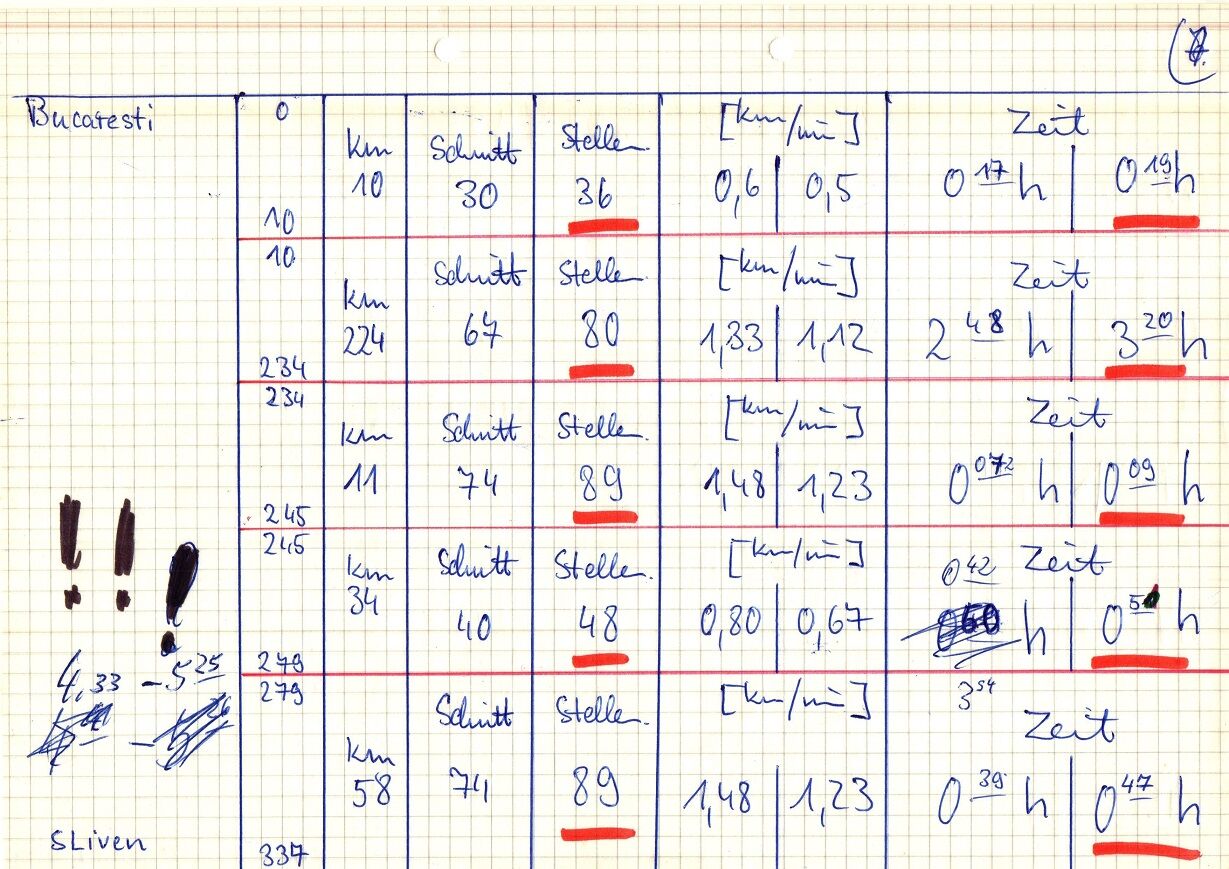 7.
Bucaresti 0 Km Schnitt Stellen [km/min] Zeit
10 30 36 0,6 0,5 0 17 h 0 19 h
10
10 Km Schnitt Stellen [km/min] Zeit
224 67 80 1,33 1,12 2 48 h 3 20 h
234
234 Km Schnitt Stellen [km/min] Zeit
11 74 89 1,48 1,23 0 072 h 0 09 h
245
!!!
245 Km Schnitt Stellen [km/min] 0 42 Zeit
34 40 48 0,80 0,67 h 0 h
279
4,33 – 5 25
279 Km Schnitt Stellen [km/min] 3 54 Zeit
58 74 89 1,48 1,23 0 39 h 0 47 h
Sliven 337